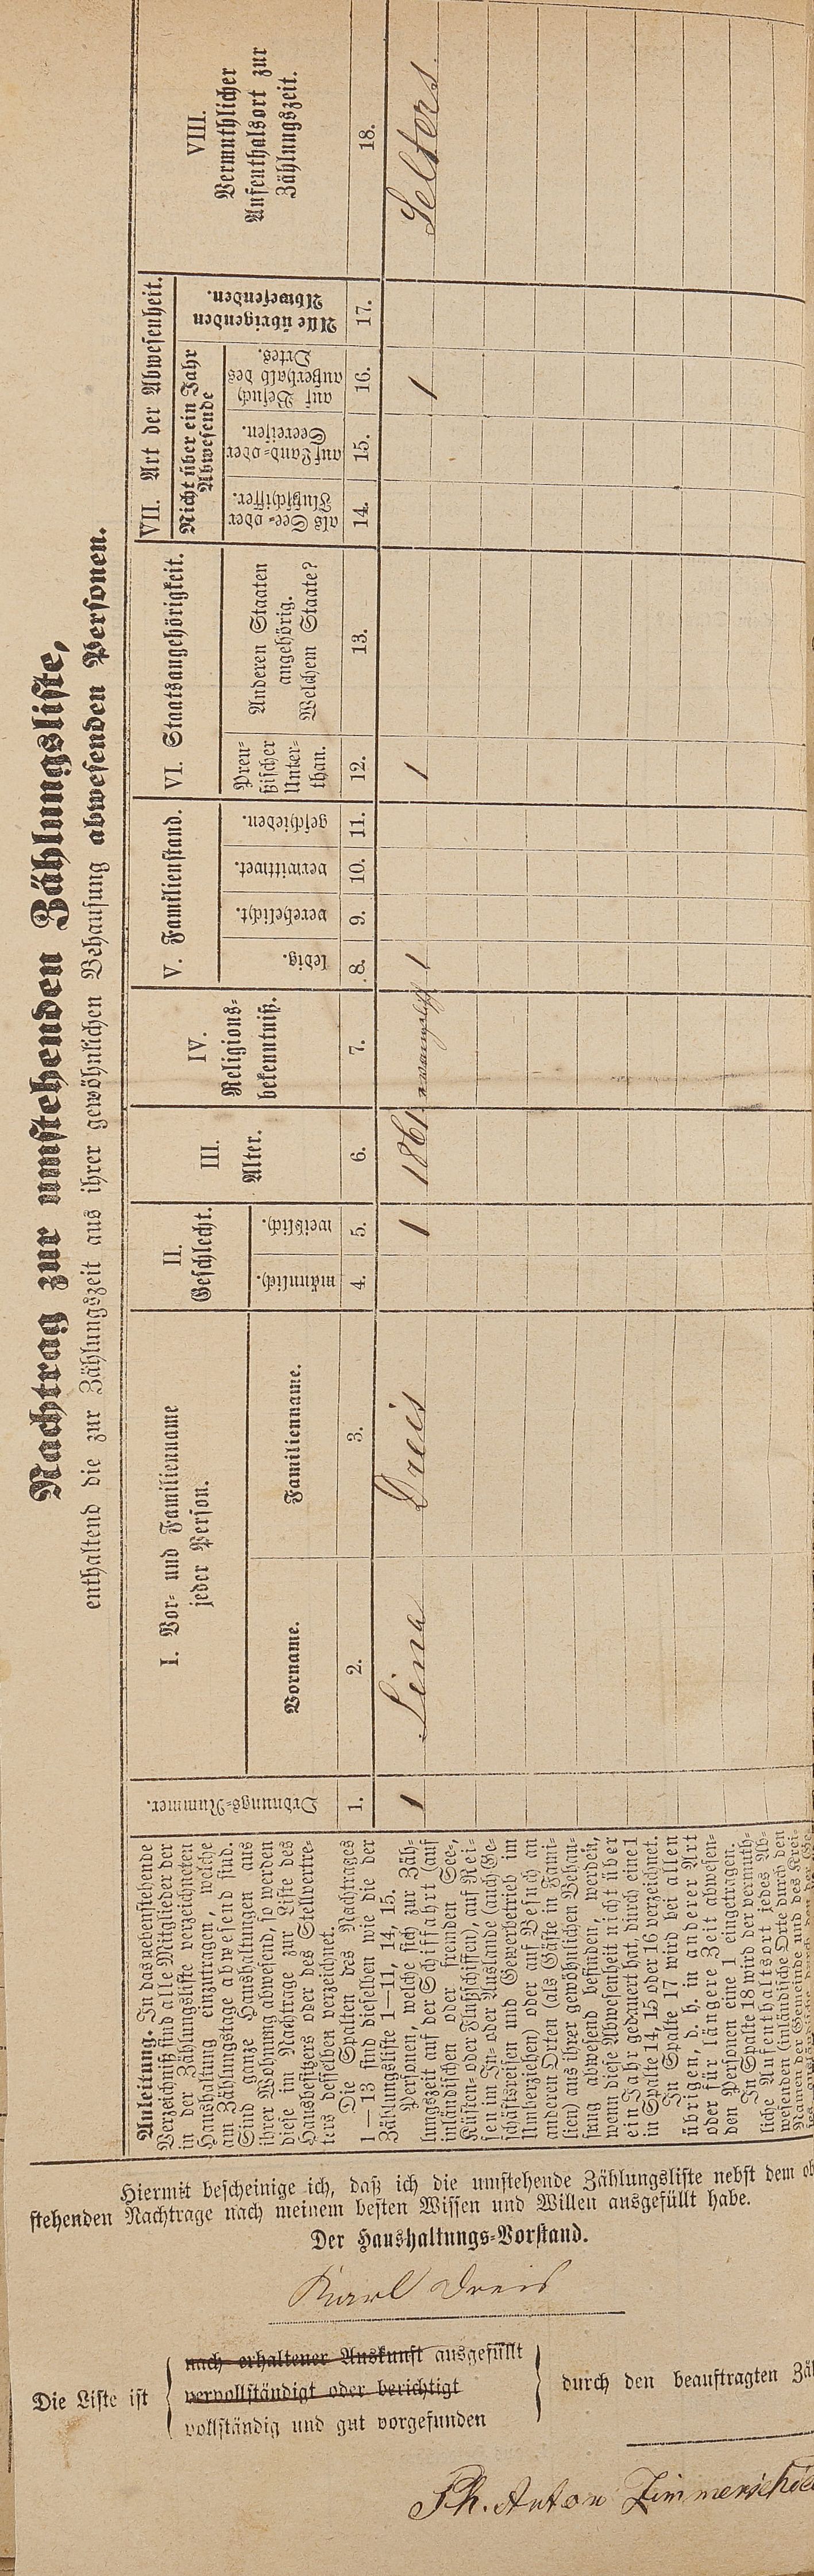 Nachtrag zur umstehenden Zählungsliste,
enthaltend die zur Zählungszeit aus ihrer gewöhnlichen Behausung abwesenden Personen.
Anleitung. In das nebenstehende
Verzeichniß sind alle Mitglieder der
in der Zählungsliste verzeichneten
Haushaltung einzutragen, welche
am Zählungstage abwesend sind.
Sind ganze Haushaltungen aus
ihrer Wohnung abwesend, so werden
diese im Nachtrage zur Liste des
Hausbesitzers oder des Stellvertre-
ters desselben verzeichnet.
Die Spalten des Nachtrages
1—13 sind dieselben wie die der
Zählungsliste 1—11, 14, 15.
Personen, welche sich zur Zäh-
lungszeit auf der Schiffahrt (auf
inländischen oder fremden See-,
Küsten- oder Flußschiffen), auf Rei-
sen im In- oder Auslande (auch Ge-
schäftsreisen und Gewerbetrieb im
Umherziehen) oder auf Besuch an
anderen Orten (als Gäste in Fami-
lien) aus ihrer gewöhnlichen Behau-
sung abwesend befinden, werden,
wenn diese Abwesenheit nicht über
ein Jahr gedauert hat, durch eine 1
in Spalte 14, 15 oder 16 verzeichnet.
In Spalte 17 wird bei allen
übrigen, d. h. in anderer Art
oder für längere Zeit abwesen-
den Personen eine 1 eingetragen.
In Spalte 18 wird der vermuth-
liche Aufenthaltsort jedes Ab-
wesenden (inländische Orte durch den
Namen der Gemeinde und des Krei-
Ordnungs-Nummer.
1.
I. Vor- und Familienname
jeder Person.
Vorname.
2.
Familienname.
3.
II.
Geschlecht.
männlich.
4.
weiblich.
5.
III.
Alter.
6.
IV.
Religions-
bekenntniß.
7.
V. Familienstand.
ledig.
8.
verehelicht.
9.
verwittwet.
10.
geschieden.
11.
VI. Staatsangehörigkeit.
Preu-
ßischer
Unter-
than.
12.
Anderen Staaten
angehörig.
Welchem Staate?
13.
VII. Art der Abwesenheit.
Nicht über ein Jahr
Abwesende
als See- oder
Flußschiffer.
14.
auf Land- oder
Seereisen.
15.
auf Besuch
außerhalb des
Ortes.
16.
Alle übrigen
Abwesenden.
17.
VIII.
Vermuthlicher
Aufenthaltsort zur
Zählungszeit.
18.
1 Lina Dreis 1 1861 evangelisch 1 1 1 Selters
Hiermit bescheinige ich, daß ich die umstehende Zählungsliste nebst dem
stehenden Nachtrage nach meinem besten Wissen und Willen ausgefüllt habe.
Der Haushaltungs-Vorstand.
Karl Dreis
Die Liste ist
nach erhaltener Auskunft ausgefüllt
vervollständigt oder berichtigt
vollständig und gut vorgefunden
durch den beauftragten
Ph. Anton